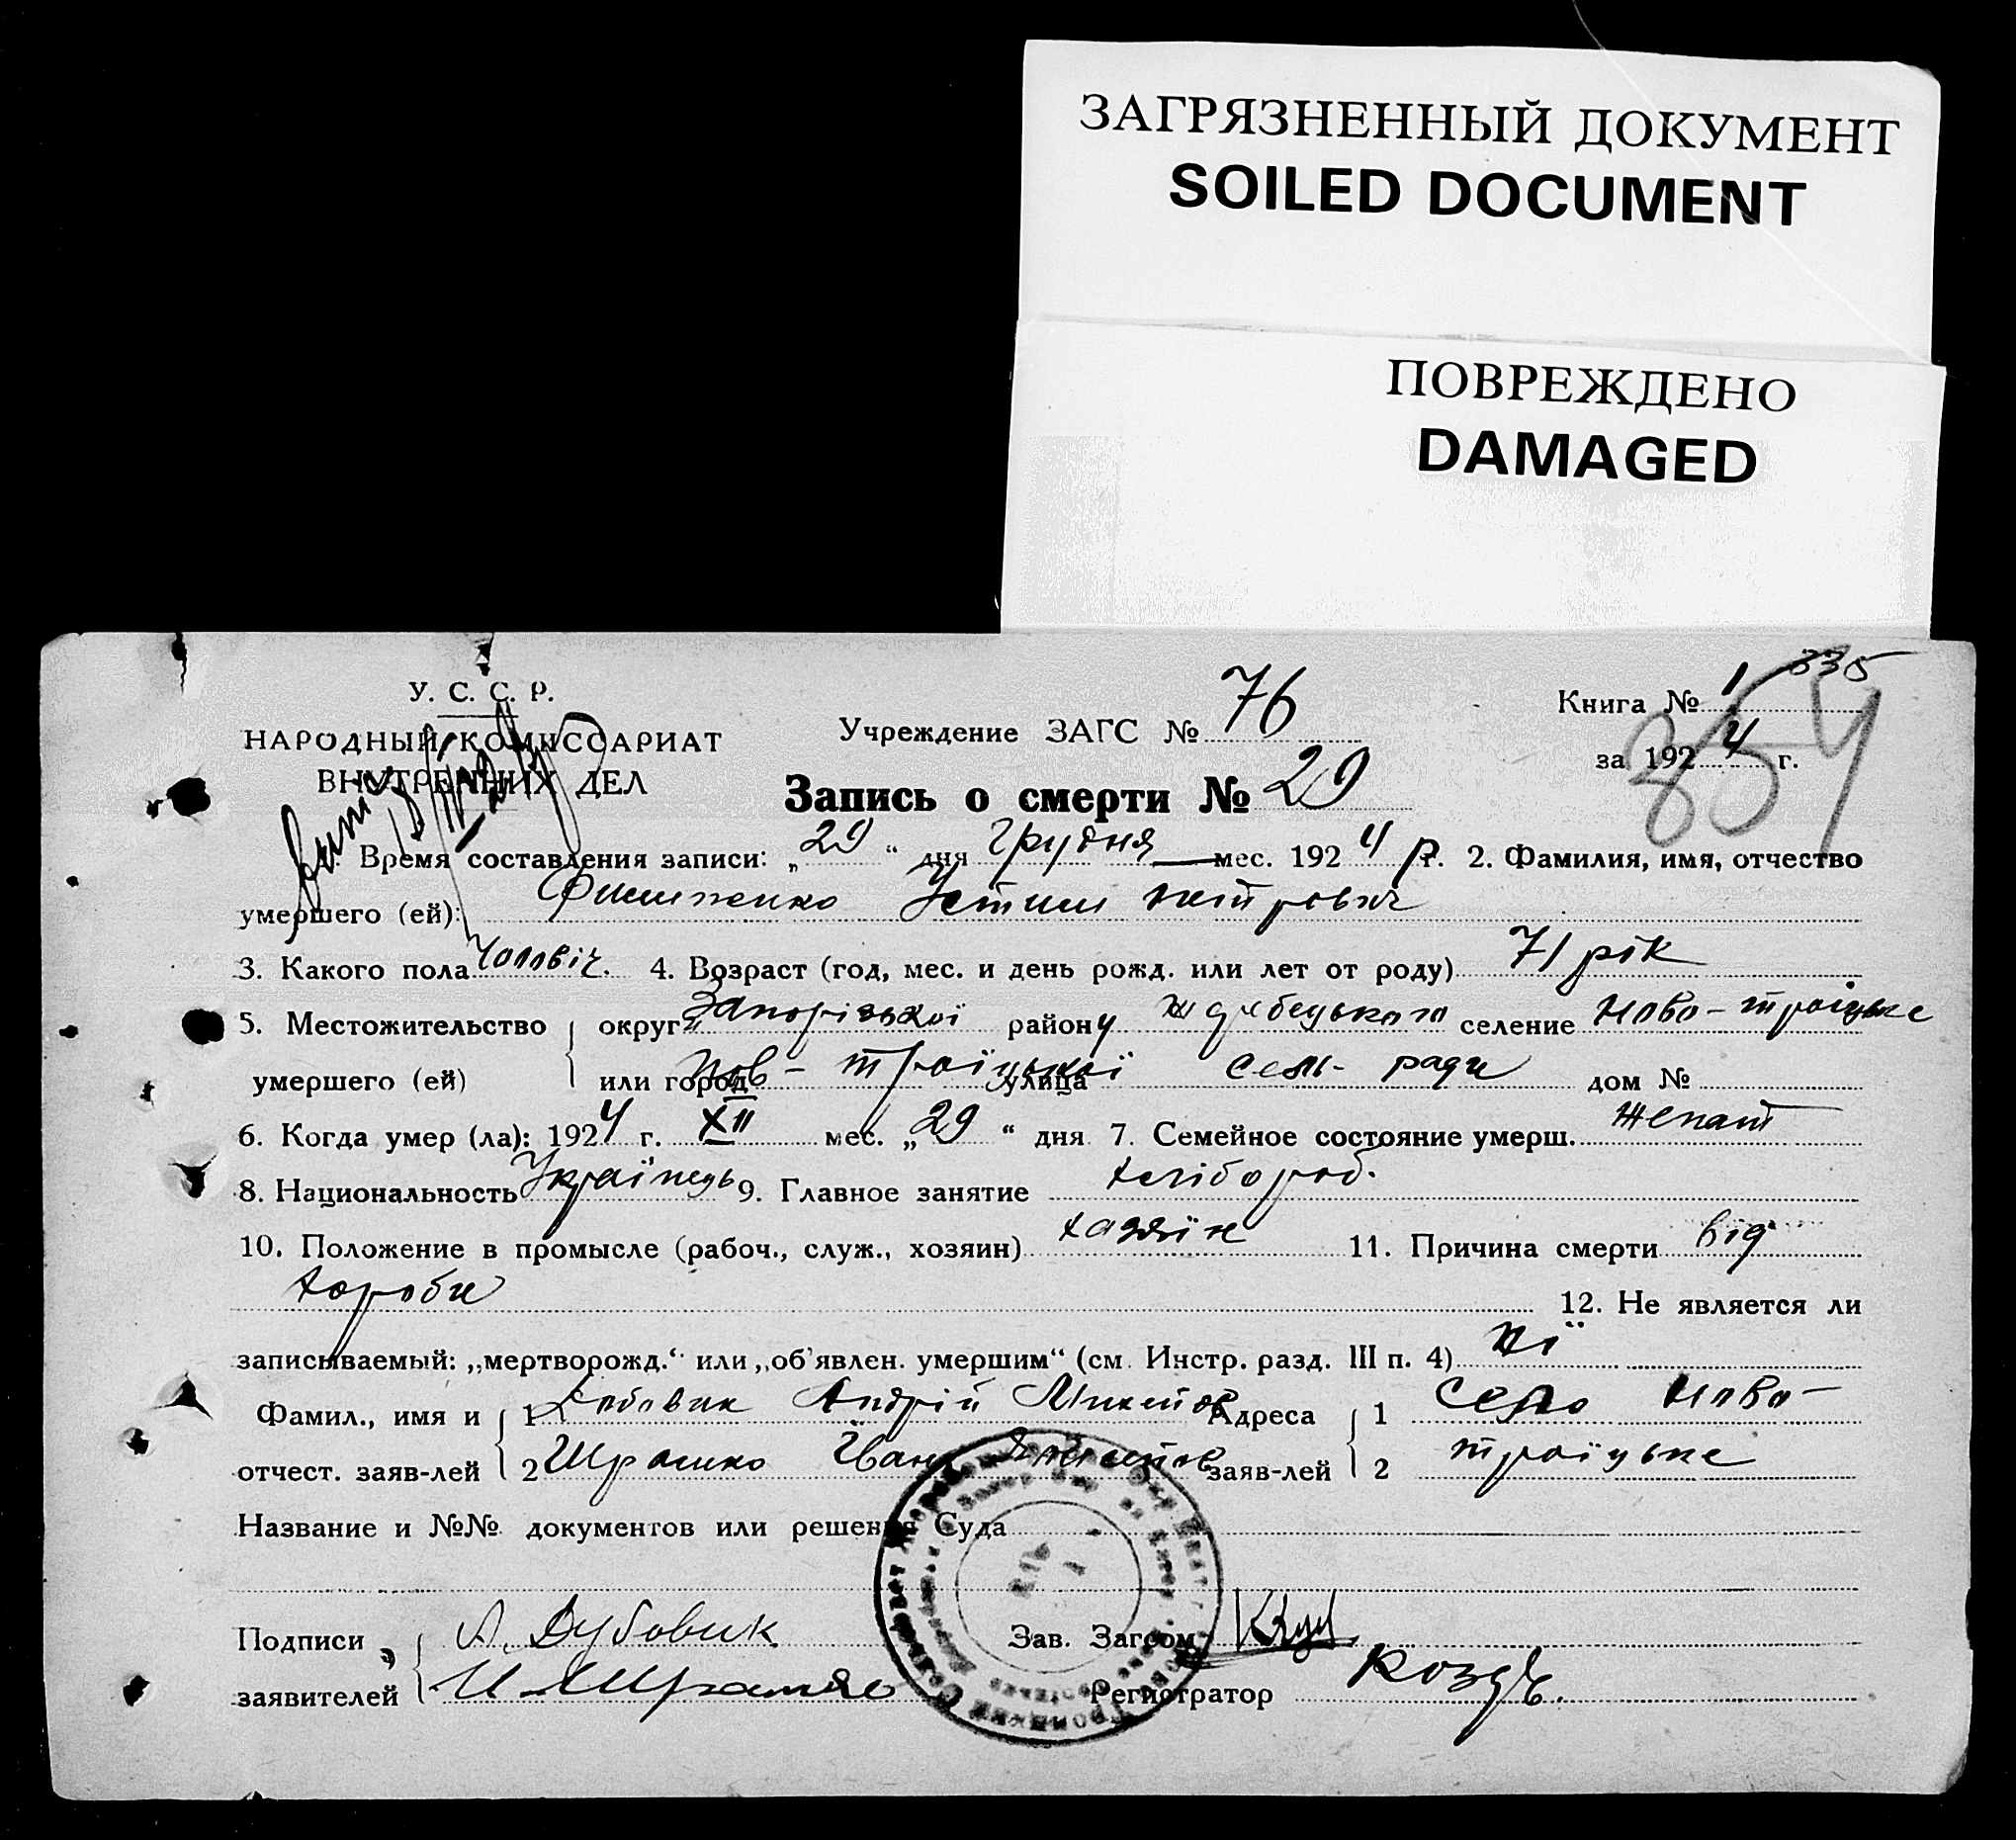 ЗАГРЯЗНЕННЫЙ ДОКУМЕНТ
SOILED DOCUMENT
ПОВРЕЖДЕНО
DAMAGED
335
У. С. С. Р.
НАРОДНЫЙ КОМИССАРИАТ
ВНУТРЕННИХ ДЕЛ
Учреждение ЗАГС № 76
Книга № 1
за 1924 г.
354
Запись о смерти № 29
1. Время составления записи: „29“ дня Грудня мес. 1924 р. 2. Фамилия, имя, отчество
умершего (ей): Устим Петрович
3. Какого пола Чоловіч. 4. Возраст (год, мес. и день рожд. или лет от роду) 71 рік
5. Местожительство округ Запорізької району Жеребецького селение Ново-троіцьке
умершего (ей) или город Нов-троїцької улица Сель-ради дом №
6. Когда умер (ла): 1924 г. XII мес. „29“ дня 7. Семейное состояние умерш. Женат
8. Национальность Українець 9. Главное занятие хлібороб.
10. Положение в промысле (рабоч., служ., хозяин) хазяін 11. Причина смерти від
хороби 12. Не является ли
записываемый: „мертворожд.“ или „об'явлен. умершим“ (см. Инстр. разд. III п. 4) Ні
Фамил., имя и 1 Андрій Адреса 1 Село Ново-
отчест. заяв-лей 2 Іван заяв-лей 2 троїцьке
Название и №№ документов или решения Суда
Подписи А. Дубовик Зав. Загсом
заявителей Регистратор